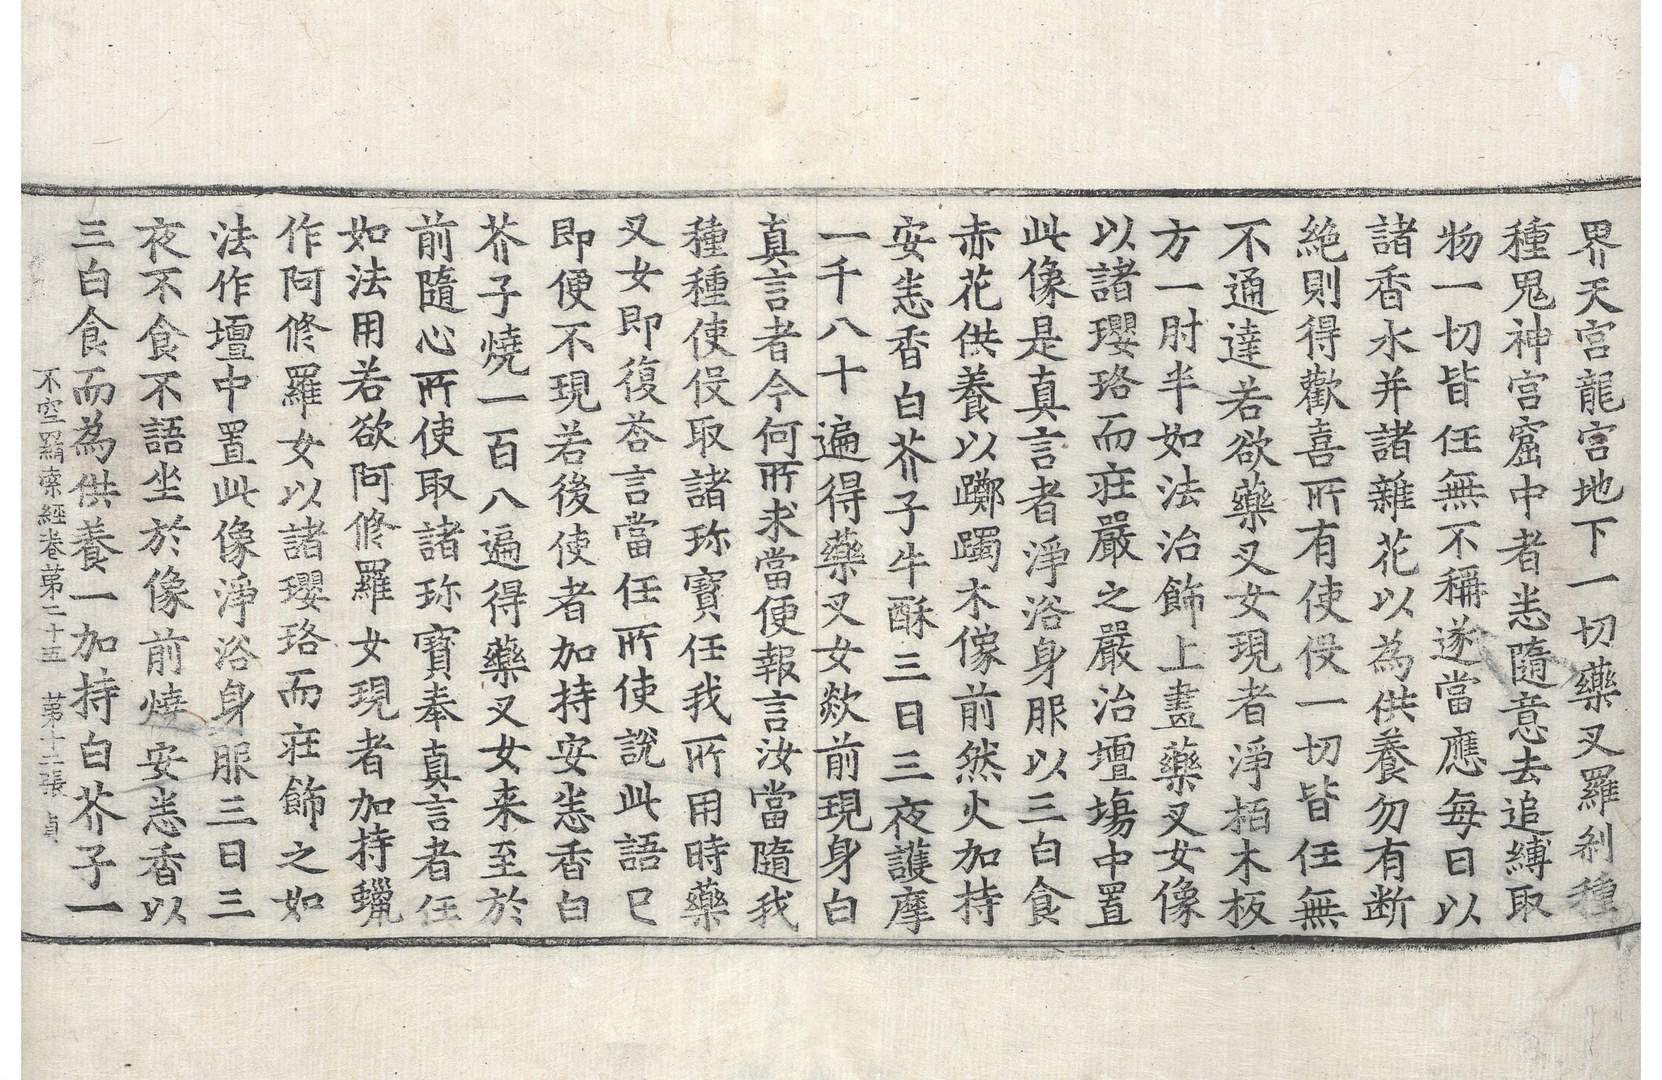 界天宮龍宮地下一切藥叉羅刹種
種鬼神宮窟中者恙隨意去追縛取
物一切皆任無不稱遂當應每日以
諸香水并諸雜花以為供養勿有断
絶則得歡喜所有使伇一切皆任無
不通達若欲藥叉女現者淨栢木板
方一肘半如法治飾上畫藥叉女像
以諸瓔珞而莊嚴之嚴治壇場中置
此像是真言者淨浴身服以三白食
赤花供養以躑躅木像前然火加持
安悉香白芥子牛酥三日三夜護摩
一千八十遍得藥叉女欻前現身白
真言者今何所求當便報言汝當隨我
種種使伇取諸珎寶任我所用時藥
叉女即復荅言當任所使說此語已
即便不現若後使者加持安悉香白
芥子燒一百八遍得藥叉女来至於
前隨心所使取諸珎寶奉真言者任
如法用若欲阿修羅女現者加持蠟
作阿修羅女以諸瓔珞而莊飾之如
法作壇中置此像淨浴身服三日三
夜不食不語坐於像前燒安悉香以
三白食而為供養一加持白芥子一
不空羂索經卷第二十五 第十二張 貞